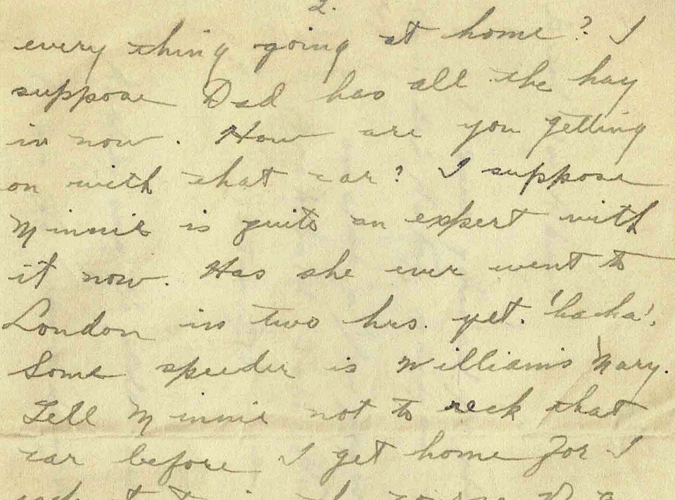 2.
every thing going at home? I
suppose Dad has all the hay
in now. How are you getting
on with that car? I suppose
Minnie is quite an expert with
it now. Has she ever went to
London in two hrs. yet. 'haha'.
Some speeder is Williams Mary.
Tell Minnie not to reck that
car before I get home for I